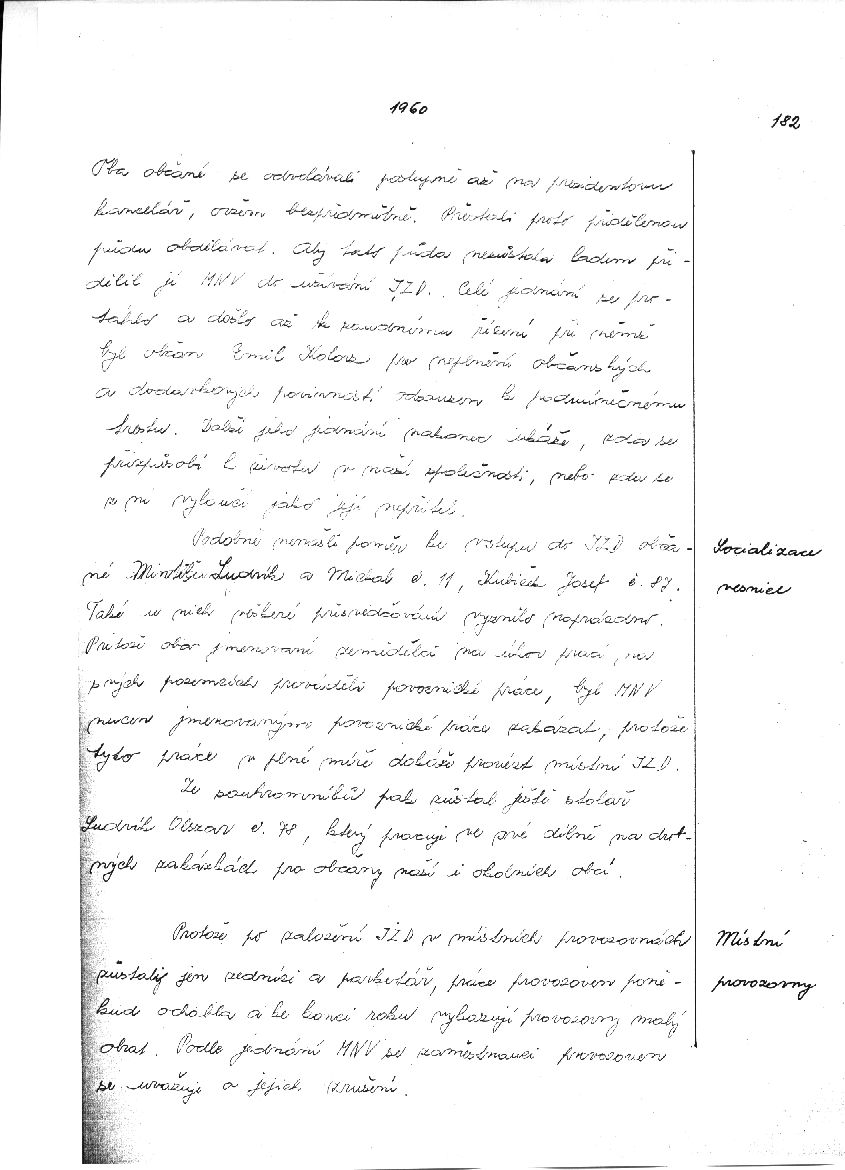 1960
182
Oba občané se odvolávali postupně až na presidentovu
kancelář, ovšem bezpředmětně. Přestali proto přidělenou
půdu obdělávat. Aby tato půda nezůstala ladem při-
dělil ji MNV do užívání JZD. Celé jednání se pro-
táhlo a došlo až k soudnímu řízení při němž
byl občan Emil Kolorz pro neplnění občanských
a dodávkových povinností odsouzen k podmínečnému
trestu. Další jeho jednání nakonec ukáže, zda se
přizpůsobí k životu v naší společnosti, nebo zda se
z ní vyloučí jako její nepřítel.
Podobně nenašli poměr ke vstupu do JZD obča-
Socializace
né Ludvík a Michal č. 11, Kubiček Josef č. 87.
vesnice
Také u nich veškeré přesvědčování vyznělo naprázdno.
Protože oba jmenovaní zemědělci na úkor prací na
svých pozemcích prováděli povoznické práce, byl MNV
nucen jmenovaným povoznické práce zakázat, protože
tyto práce v plné míře dokáže provést místní JZD.
Ze soukromníků pak zůstal ještě stolař
Ludvík Olszar č. 78, který pracuje ve své dílně na drob-
ných zakázkách pro občany naší i okolních obcí.
Protože po založení JZD v místních provozovnách
Místní
zůstali jen zedníci a parketář, práce provozoven poně-
provozovny
kud ochabla a ke konci roku vykazují provozovny malý
obrat. Podle jednání MNV se zaměstnanci provozoven
se uvažuje o jejich zrušení.